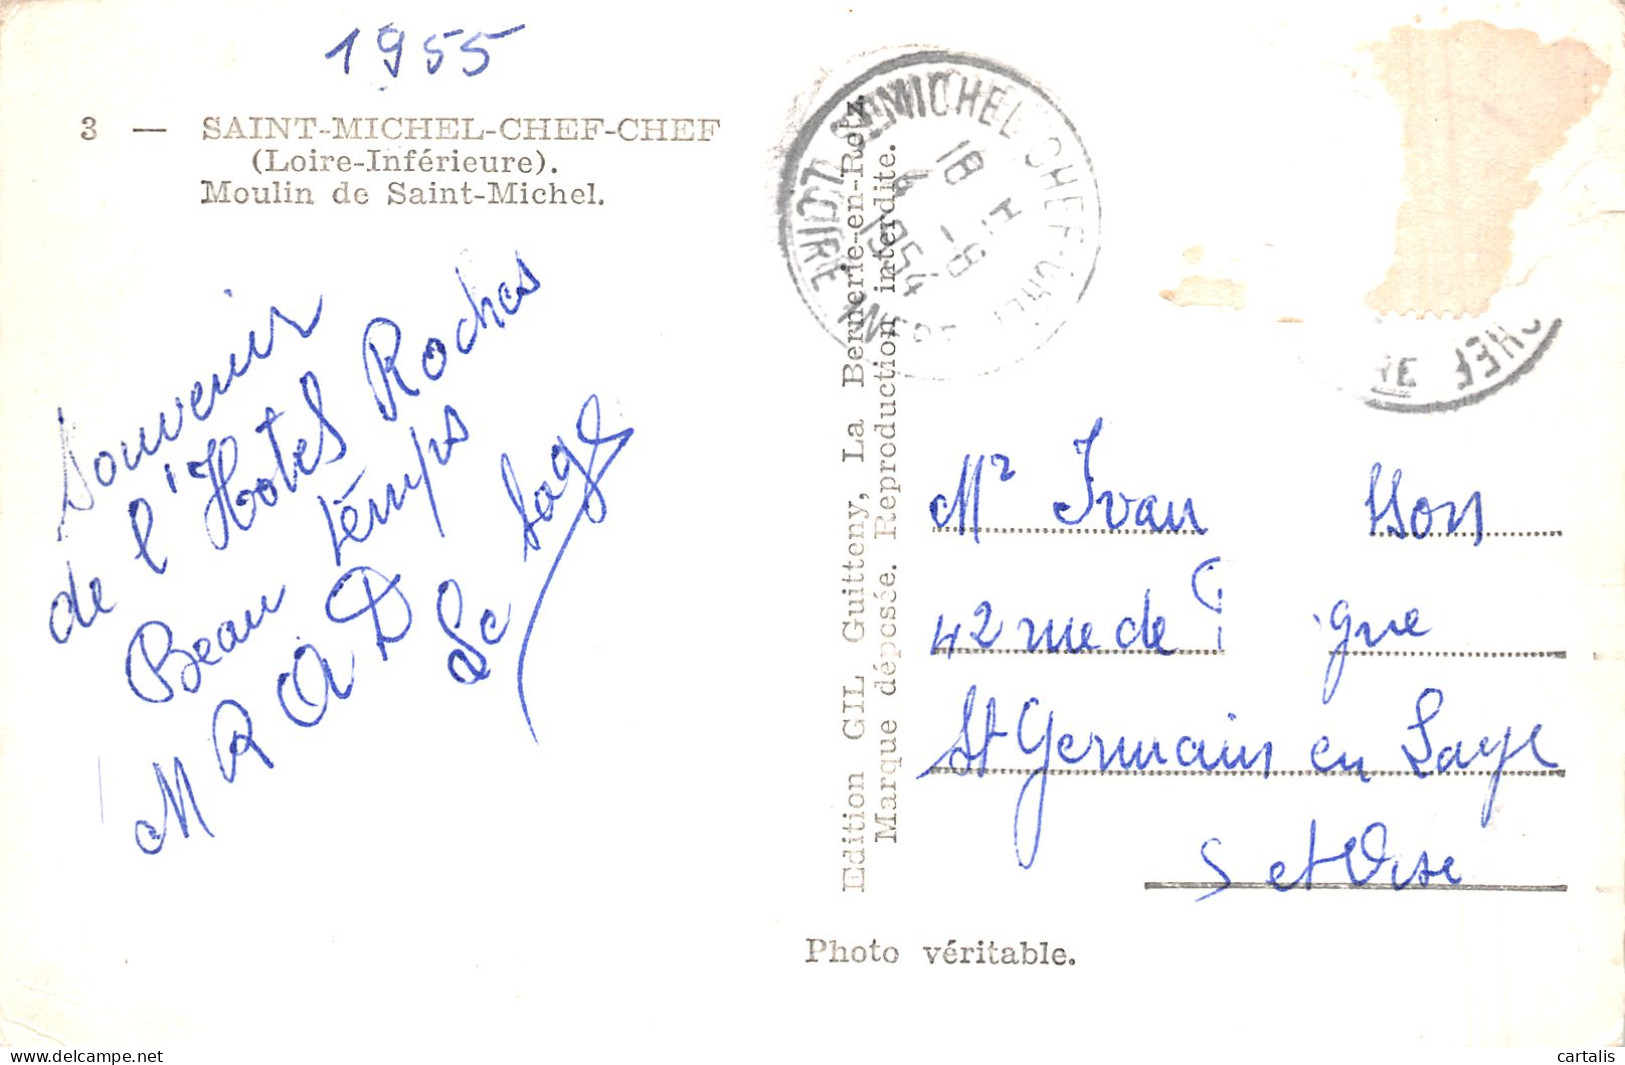 1955
3 — SAINT-MICHEL-CHEF-CHEF
(Loire-Inférieure).
Moulin de Saint-Michel.
Souvenir
de l'Hotel Roches
Beau temps
M R a D
Le Sage
Edition GIL Guitteny, La Bernerie-en-Retz.
Marque déposée. Reproduction interdite.
MICHEL-CHEF-CHEF
18 H
4 - 9
1954
LOIRE INF
CHEF
Mr Ivan
42 rue de
gue
St Germain en Laye
S et Oise
Photo véritable.
https://www.delcampe.net
cartalis